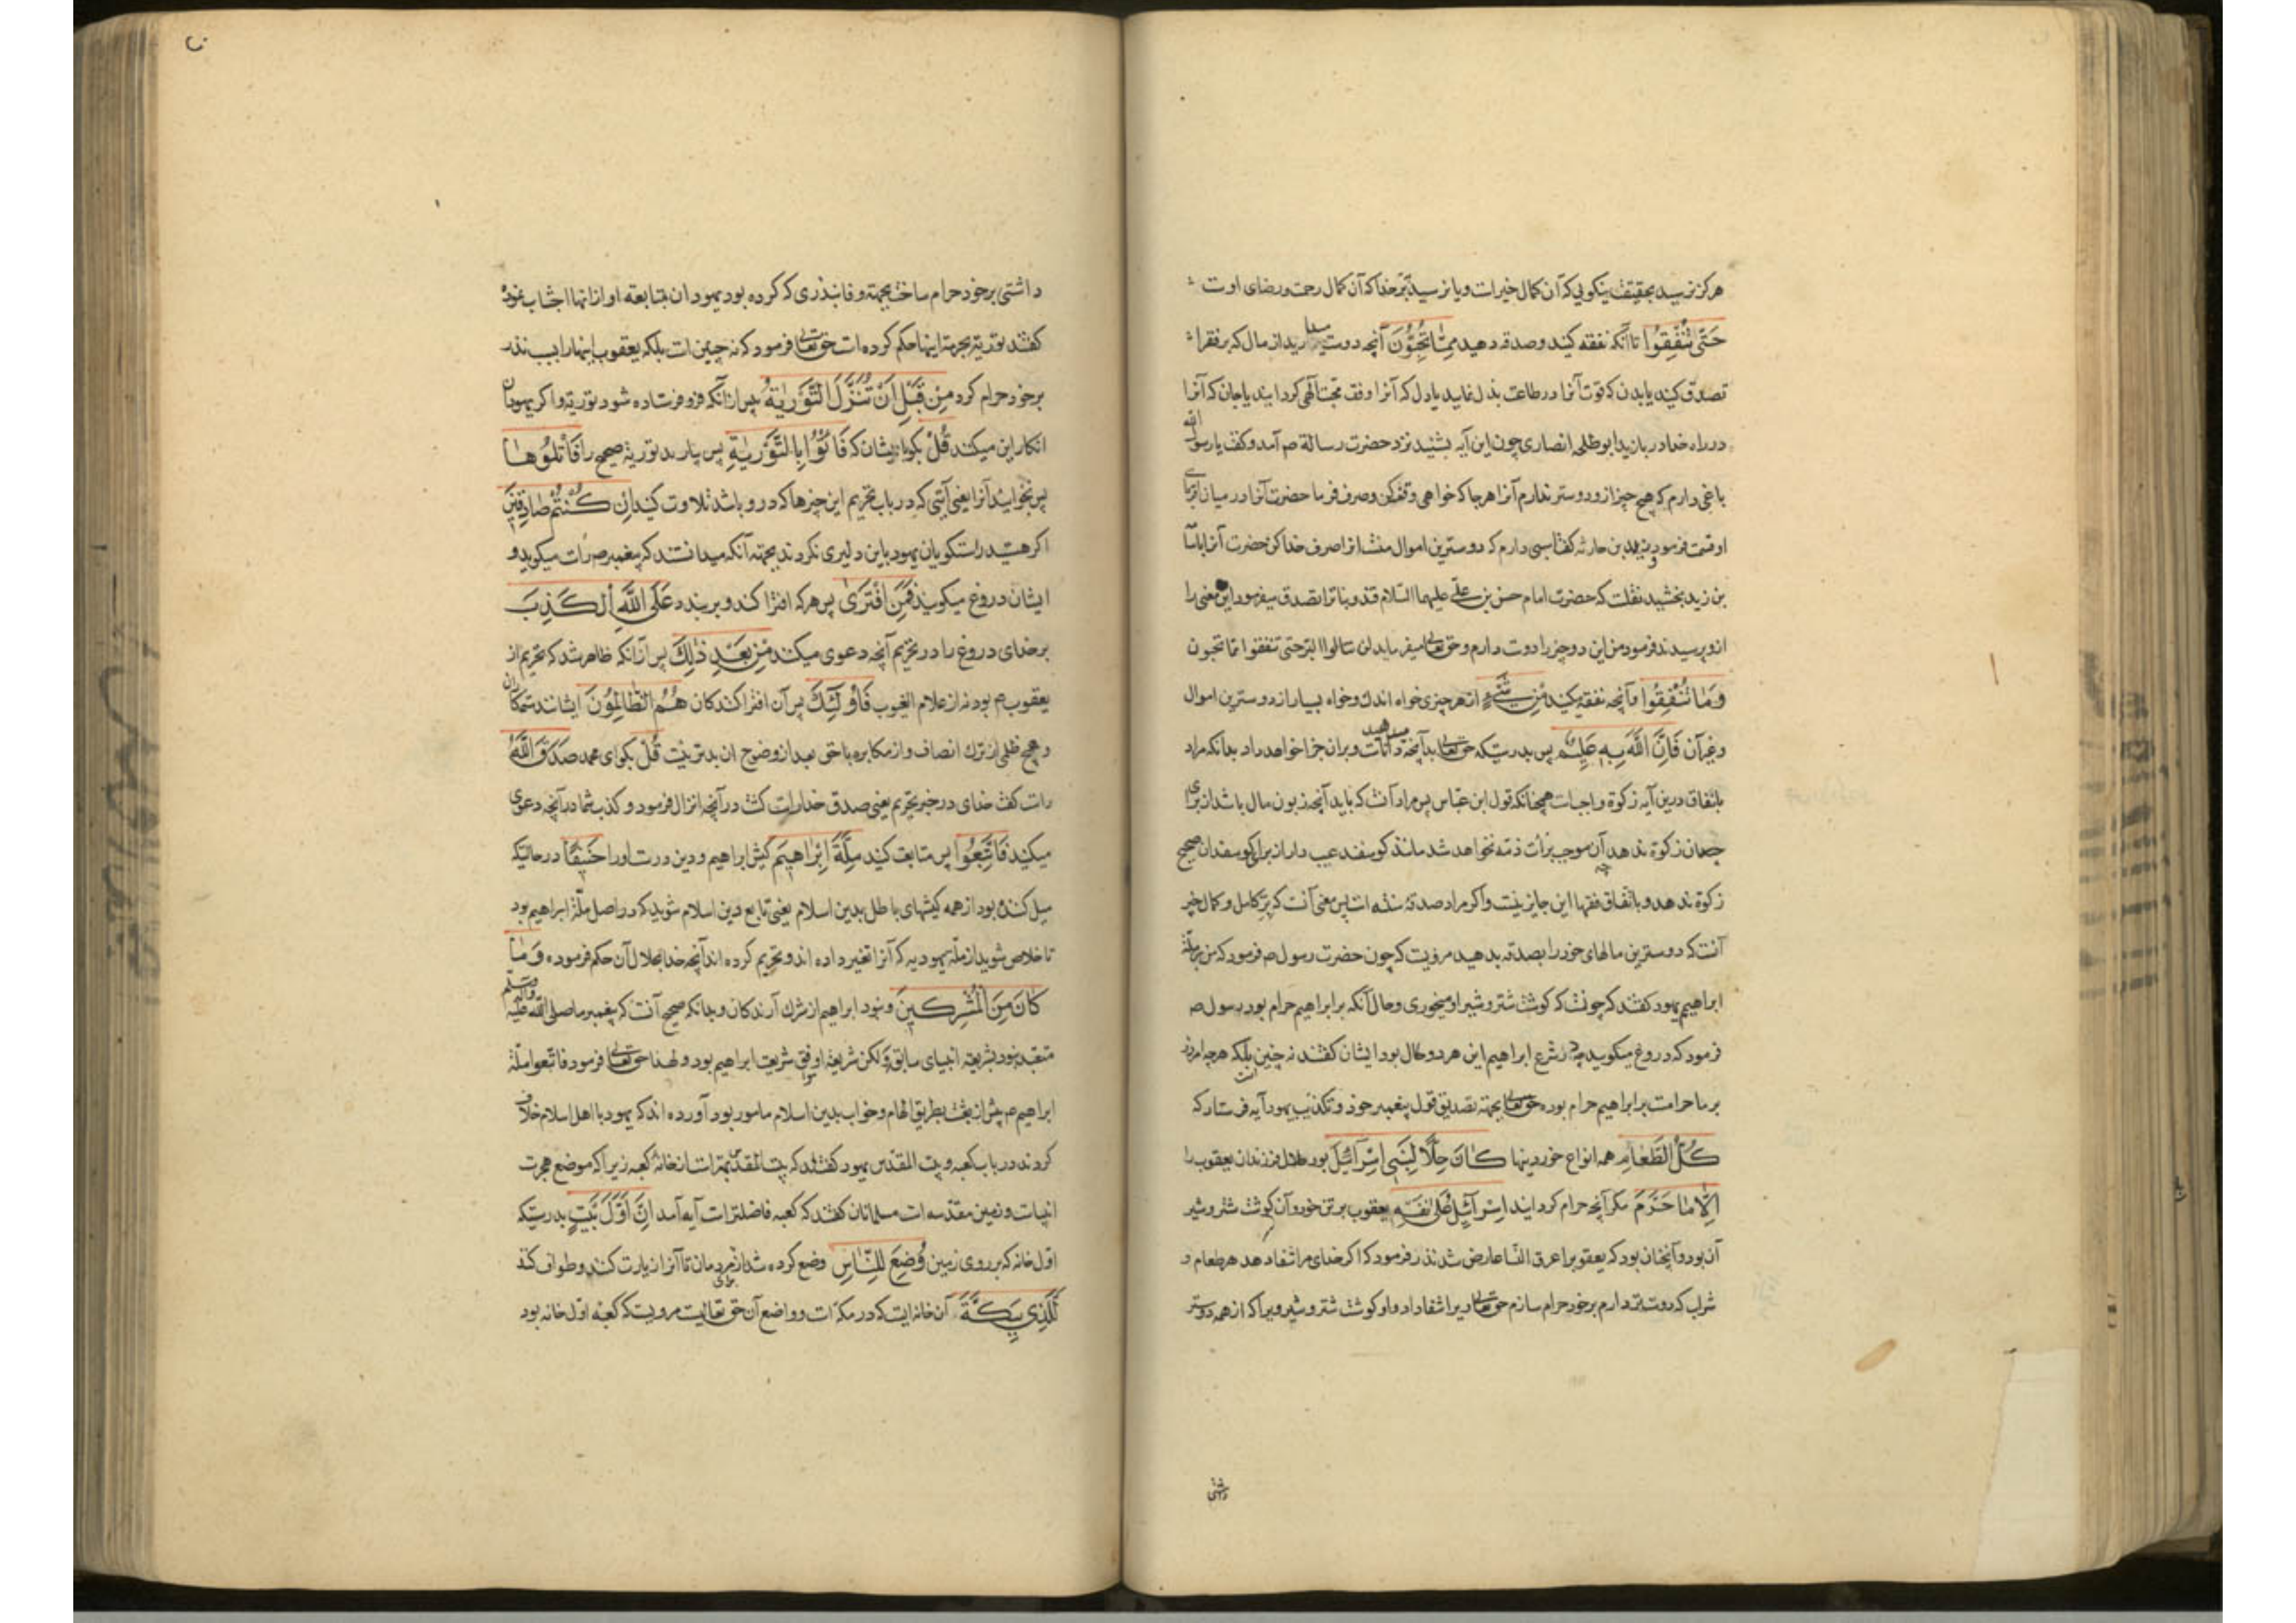 هرکز نرسید بحقیقت نیکویی که آن کمال خیراتست ویا نرسید ببر خدا که آن کمال رحمت ورضای اوست
حَتّٰی تُنْفِقُوا تا آنکه نفقه کنید وصدقه دهید مِمّٰا تُحِبُّونَ آنچه دوست میدارید از مال که بر فقرا
تصدق کنید یا بدن که قوت آنرا در طاعت بذل نمایید یا دل که آنرا وقف محبت الهی کردانید یا جان که آنرا
در راه خدا دربازید ابو طلحه انصاری چون این آیه بشنید نزد حضرت رسالة ص آمد و کفت یا رسول الله
باغی دارم که هیچ چیز ازو دوستر ندارم آنرا هرجا که خواهی وقف کن وصرف فرما حضرت آنرا در میان اقربای
او قسمت فرمود و زید بن حارثه کفت اسبی دارم که دوسترین اموال منست انرا صرف خدا کن حضرت آنرا باسامة
بن زید بخشید نقلست که حضرت امام حسن بن علی علیهما السلام قند وبنات را تصدق میفرمود این معنی را
ازو پرسیدند فرمود من این دو چیز را دوست دارم وحق تعالی میفرماید لن تنالوا البر حتی تنفقوا مما تحبون
وَمٰا تُنْفِقُوا وآنچه نفقه میکنید مِنْ شَیْءٍ از هر چیزی خواه اندک وخواه بسیار از دوسترین اموال
وغیر آن فَاِنَّ اللّٰهَ بِهِ عَلِیمٌ پس بدرستیکه حق تعالی بدآنچه میدهید داناست وبران جزا خواهد داد بدانکه مراد
بانفاق درین آیه زکوة واجبست همچنانکه قول ابن عباس پس مراد آنست که باید آنچه زبون مال باشد از برای
جهان زکوة ندهد چه آن موجب برأت ذمه نخواهد شد مانند کوسفند عیب دار از برای کوسفندان صحیح
زکوة ندهد وباتفاق فقها این جایز نیست واکر مراد صدقهٔ سنة است پس معنی آنست که بر کامل وکمال خیر
آنست که دوسترین مالهای خود را بصدقه بدهید مرویست که چون حضرت رسول ص فرمود که من بر ملة
ابراهیم یهود کفتند که چونست که کوشت شتر وشیر او میخوری وحال آنکه بر ابراهیم حرام بود رسول ص
فرمود که دروغ میکویید چه در شرع ابراهیم این هر دو حلال بود ایشان کفتند نه چنین است بلکه هرچه امروز
بر ما حرامست بر ابراهیم حرام بوده حق تعالی بجهة تصدیق قول پیغمبر خود وتکذیب یهود آیه فرستاد که
کُلُّ الطَّعٰامِ همه انواع خوردینها کٰانَ حِلًّا لِبَنِی اِسْرٰآئِیلَ بود حلال مر فرزندان یعقوب را
اِلّٰا مٰا حَرَّمَ مکر آنچه حرام کردانید اِسْرٰآئِیلُ عَلٰی نَفْسِهِ یعقوب بر تن خود وآن کوشت شتر وشیر
آن بود وآنچنان بود که یعقوب را عرق النسا عارض شد نذر فرمود که اکر خدای مرا شفا دهد هر طعام و
شراب که دوستتر دارم برخود حرام سازم حق تعالی ویرا شفا داد واو کوشت شتر وشیر ویرا که از همه دوستر
داشتی
داشتی برخود حرام ساخت بجهة وفا بنذری که کرده بود یهودان بمتابعة او از انها اجتناب نموده
کفتند توریة بحرمة اینها حکم کرده است حق تعالی فرمود که نه چنین است بلکه یعقوب اینها را بسبب نذر
برخود حرام کرد مِنْ قَبْلِ اَنْ تُنَزَّلَ التَّوْرٰیةُ پس از آنکه فرو فرستاده شود توریة واکر یهودان
انکار این میکنند قُلْ بکو با ایشان که فَاْتُوا بِالتَّوْرٰیةِ پس بیارید توریة صحیح را فَاتْلُوهٰا
پس بخوانید آنرا یعنی آیتی که در باب تحریم این چیزها که درو باشد تلاوت کنید اِنْ کُنْتُمْ صٰادِقِینَ
اکر هستید راستکویان یهود باین دلیری نکردند بجهة آنکه میدانستند که پیغمبر ص راست میکوید و
ایشان دروغ میکویند فَمَنِ افْتَرٰی پس هرکه افترا کند وبربندد عَلَی اللّٰهِ الْکَذِبَ
برخدای دروغ را در تحریم آنچه دعوی میکند مِنْ بَعْدِ ذٰلِکَ پس از آنکه ظاهر شد که تحریم از
یعقوب ع بود نه از علام الغیوب فَاُولٰئِکَ پس آن افترا کنندکان هُمُ الظّٰالِمُونَ ایشانند ستمکاران
وهیچ ظلمی از ترک انصاف واز مکابره با حق بعد از وضوح ان بدتر نیست قُلْ بکو ای محمد صَدَقَ اللّٰهُ
راست کفت خدای در خبر تحریم یعنی صدق خدا راست کشت در آنچه انزال فرمود وکذب شما در آنچه دعوی
میکنید فَاتَّبِعُوا پس متابعت کنید مِلَّةَ اِبْرٰاهِیمَ کیش ابراهیم ودین درست او را حَنِیفًا در حالتیکه
میل کننده بود از همه کیشهای باطل بدین اسلام یعنی تابع دین اسلام شوید که در اصل ملة ابراهیم بود
تا خلاص شوید از ملة یهودیه که آنرا تغیر داده اند وتحریم کرده اند آنچه خدا بحلال آن حکم فرموده وَمٰا
کٰانَ مِنَ الْمُشْرِکِینَ ونبود ابراهیم از شرک آرندکان وبدانکه صحیح آنست که پیغمبر ما صلی الله علیه وآله وسلم
متعبد نبود بشریعة انبیای سابق ولکن شریعة او موافق شریعت ابراهیم بود ولهذا حق تعالی فرمود فاتبعوا ملة
ابراهیم ص پیش از بعثت بطریق الهام وخواب بدین اسلام مامور بود آورده اند که یهود با اهل اسلام خلاف
کردند در باب کعبه وبیت المقدس یهود کفتند که بیت المقدس بهتر است از خانهٔ کعبه زیرا که موضع هجرت
انبیاست وزمین مقدسه است مسلمانان کفتند که کعبه فاضلتر است آیه آمد اِنَّ اَوَّلَ بَیْتٍ بدرستیکه
اول خانه که بر روی زمین وُضِعَ لِلنّٰاسِ وضع کرده شد از برای مردمان تا آنرا زیارت کنند وطواف کنند
لَلَّذِی بِبَکَّةَ آن خانه ایست که در مکه است وواضع آن حق تعالیست مرویست که کعبه اول خانه بود